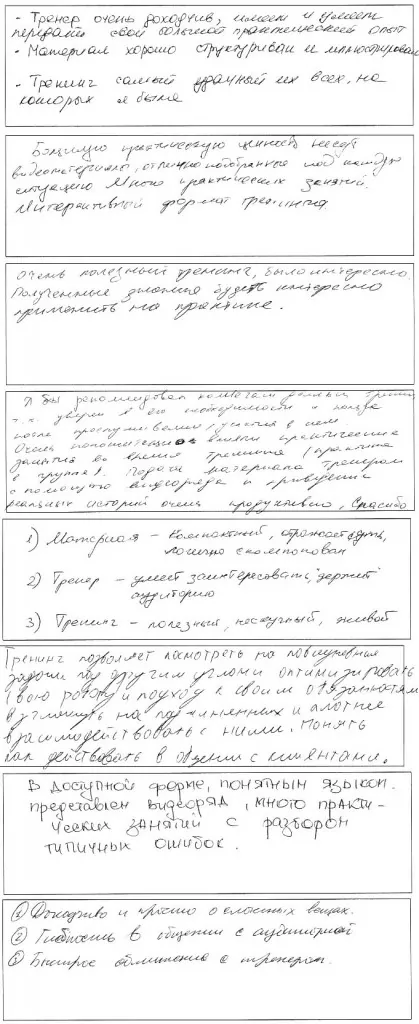 - Тренер очень доходчив, имеет и умеет
передать свой большой практический опыт
- Материал хорошо структурирован и иллюстрирован
- Тренинг самый удачный из всех, на
которых я была
Большую практическую ценность несут
видеоматериалы, отлично подобранные под каждую
ситуацию. Много практических занятий.
Интерактивный формат тренинга.
Очень полезный тренинг, было интересно.
Полученные знания будет интересно
применить на практике.
Я бы рекомендовал коллегам данный тренинг
т.к. уверен в его и пользе
после прослушивания, участия в нем
Очень положительно влияют практические
занятия во время тренинга (практика
в группе). Подача материала тренером
с помощью видеоряда и приведения
реальных историй очень продуктивно, Спасибо
1) Материал – компактный, отражает суть,
логично скомпонован
2) Тренер – умеет заинтересовать, "держит"
аудиторию
3) Тренинг – полезный, нескучный, живой
Тренинг позволяет посмотреть на повседневные
задачи под другим углом и оптимизировать
свою работу и подход к своим обязанностям
взглянуть на подчиненных и плотнее
взаимодействовать с ними. Понять
как действовать в общении с клиентами.
В доступной форме, понятным языком.
представлен видеоряд, много практи-
ческих занятий с разбором
типичных ошибок.
① Доходчиво и просто о сложных вещах.
② Гибкость в общении с аудиторией
③ Быстрое с тренером.